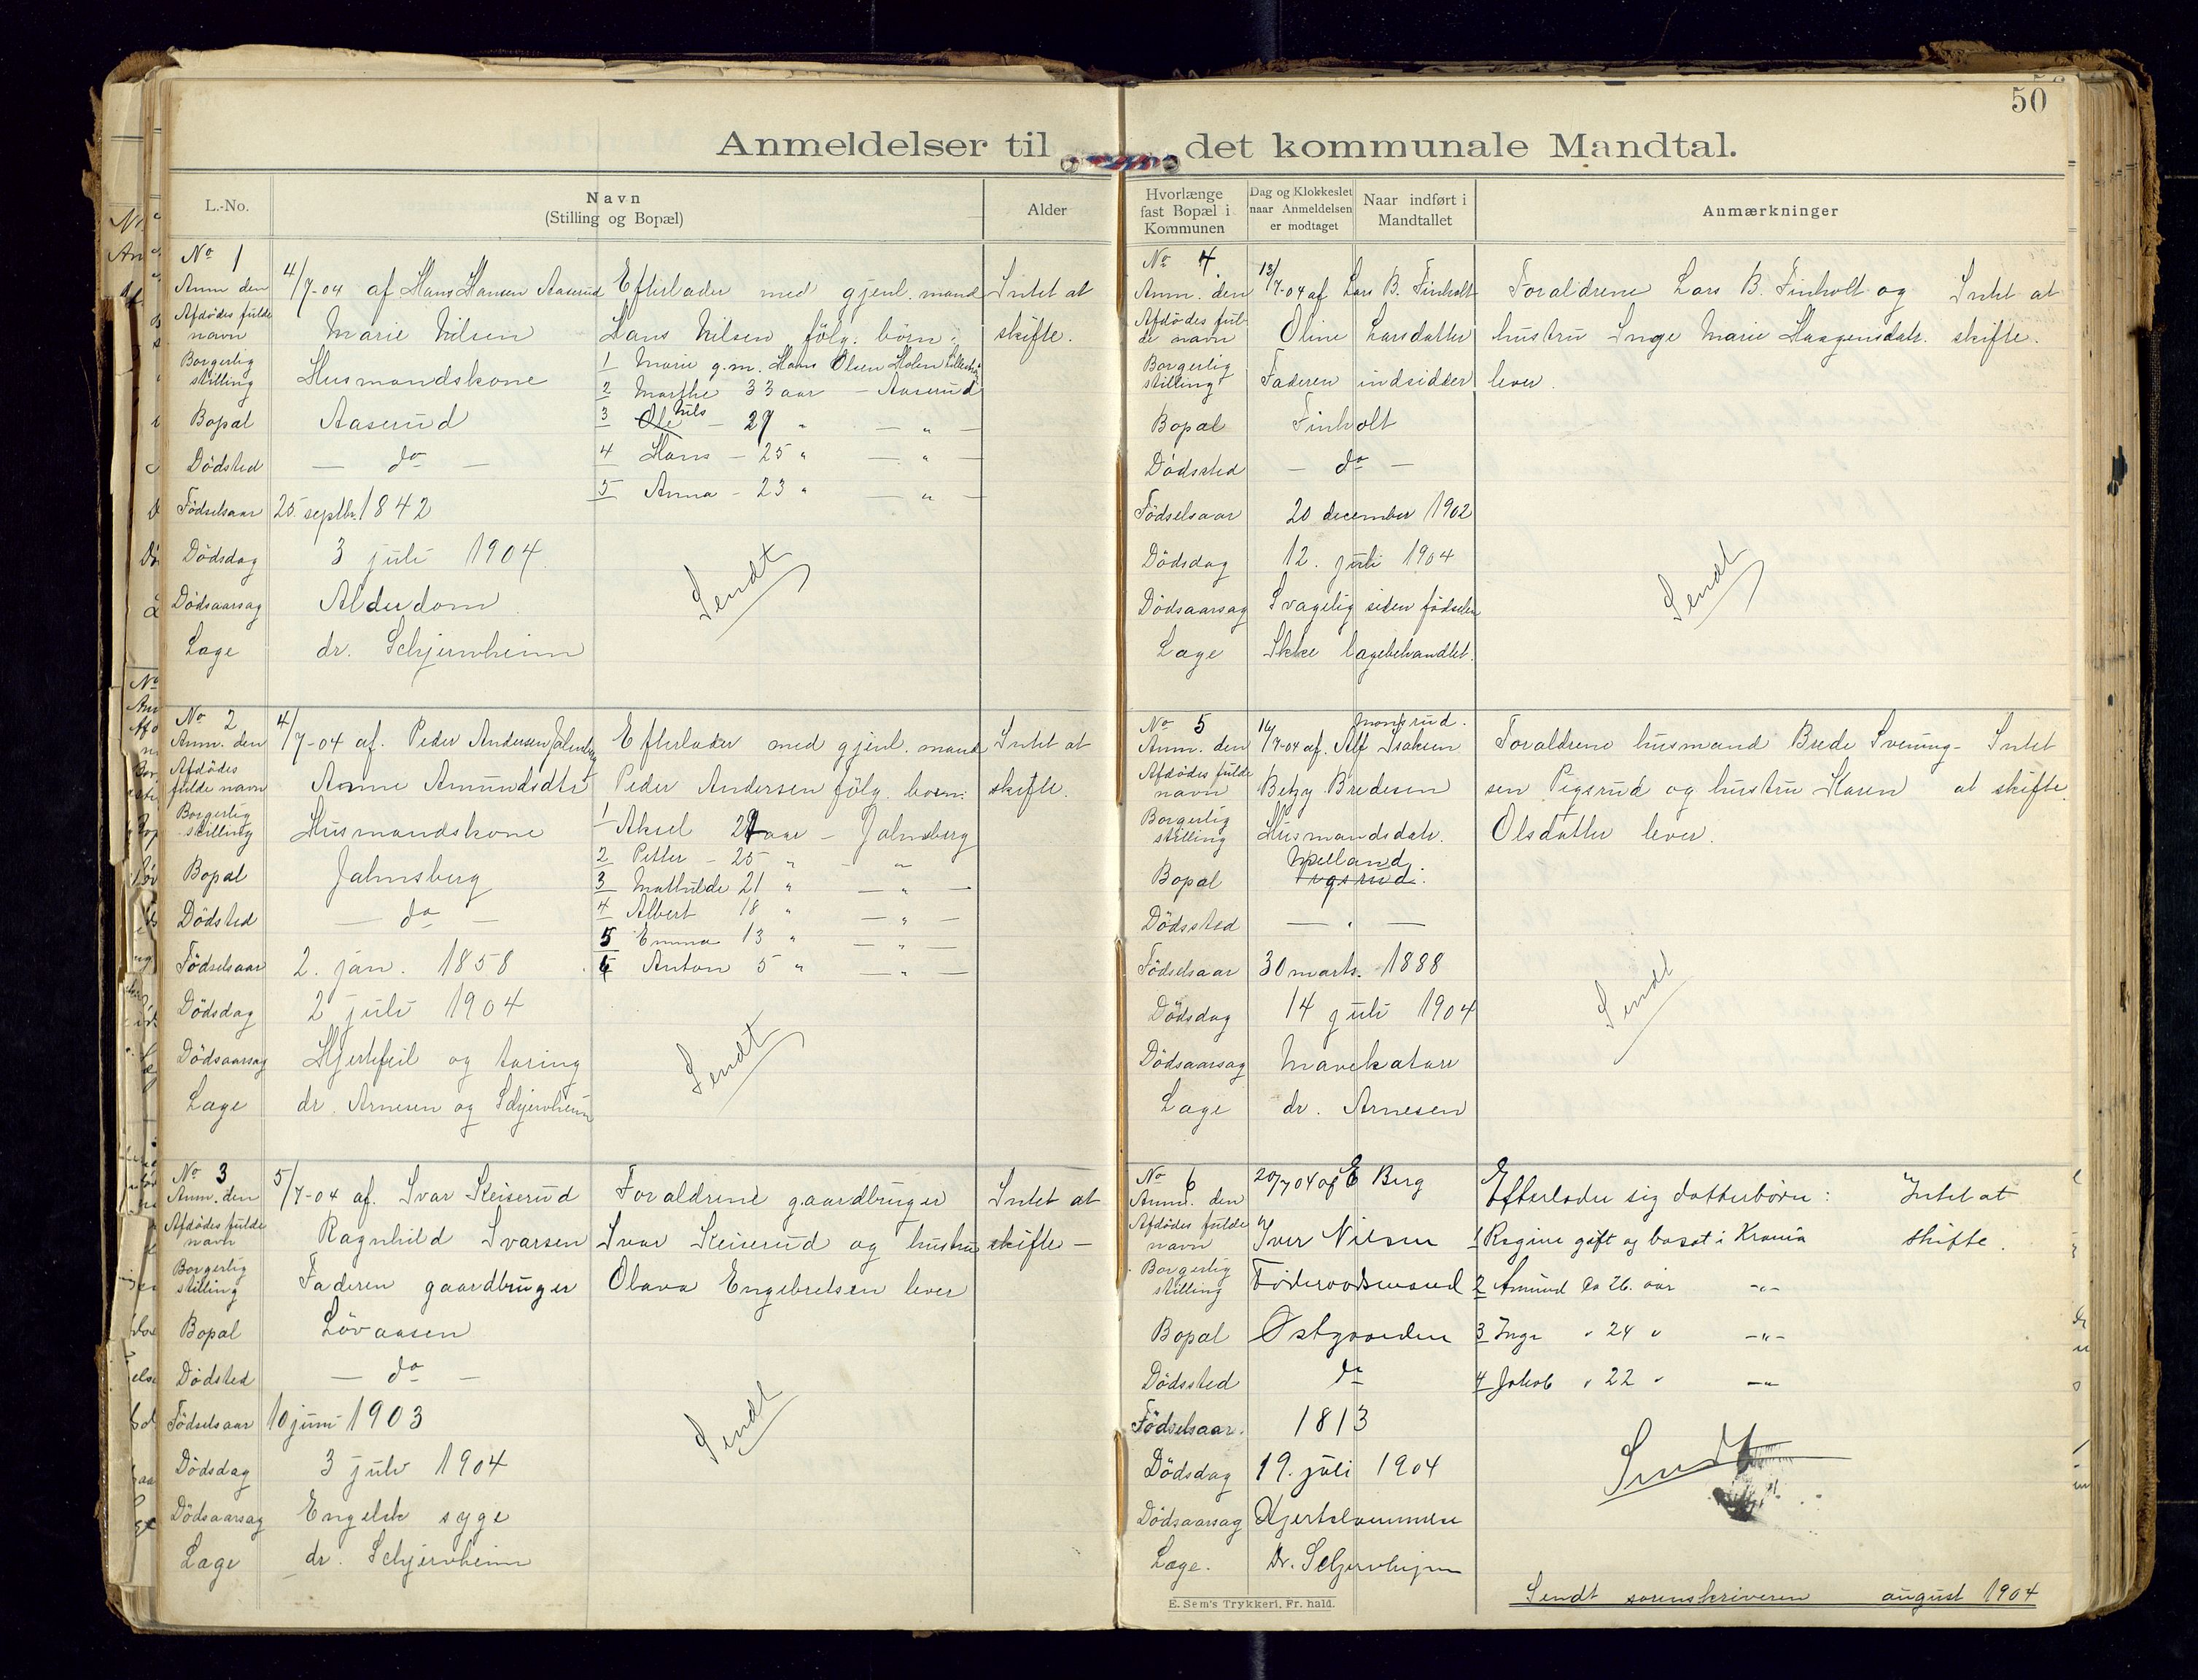 50
Anmeldelser til det kommunale Mandtal.
L.-No.
Navn
(Stilling og Bopæl)
Alder
Hvorlænge
fast Bopæl i
Kommunen
Dag og Klokkeslet
naar Anmeldelsen
er modtaget
Naar indført i
Mandtallet
Anmærkninger
No 1
Anm den 4/7-04 af Hans Hansen Aaserud Efterlader med gjenl. mand Intet at
Afdødes fulde
navn Marie Nilsen Hans Nilsen følg. børn: skifte.
Borgerlig
stilling Husmandskone
1 Marie g.m. Hans Olsen Holen Lillestrøm
2 Marthe 33 aar - Aaserud
Bopæl Aaserud
3 Ole Nils - 29 " - " -
4 Hans - 25 " - " -
Dødsted - do -
5 Anna - 23 " - " -
Fødselsaar 25. septbr. 1842
Dødsdag 3 juli 1904.
Sendt
Dødsaarsag Alderdom
Læge dr. Schjernheim
No 2
Anm. den 4/7-04 af. Peder Andersen Jalmsberg Efterlader med gjenl. mand Intet at
Afdødes
fulde navn Anne Amundsdtr Peder Andersen følg. børn: skifte.
Borgerlig
stilling Husmandskone
1 Aksel 29 aar - Jalmsberg
2 Petter - 25 " - "
Bopæl Jalmsberg
3 Mathilde 21 " - " -
4 Albert 18 " - " -
Dødsted - do -
5 Emma 13 " - " -
6 Anton 5 " - " -
Fødselsaar 2. jan. 1858
Dødsdag 2 juli 1904
Sendt
Dødsaarsag Hjertefeil og tæring
Læge dr. Arnesen og Schjernheim
No 3
Anm. den 5/7-04 af. Ivar Keiserud Forældrene gaardbruger Intet at
Afdødes fulde
navn Ragnhild Ivarsen Ivar Keiserud og hustru skifte -
Borgerlig
stilling Faderen gaardbruger Olava Engebretsen lever
Bopæl Løvaasen
Dødsted - do -
Fødselsaar 10 juni 1903
Sendt
Dødsdag 3 juli 1904
Dødsaarsag Engelsk syge
Læge dr. Schjernheim
No 4.
Anm. den 13/7-04 af Lars B. Finholt Forældrene Lars B. Finholt og Intet at
Afdødes ful-
de navn Oline Larsdatter hustru Inge Marie Haagensdatr. skifte.
Borgerlig
stilling Faderen indsidder lever.
Bopæl Finholt
Dødssted - do -
Fødselsaar 20 december 1902
Dødsdag 12. juli 1904
Sendt
Dødsaarsag Svagelig siden fødselen
Læge Ikke lægebehandlet.
No 5
Mangsrud.
Anm. den 14/7-04 af. Alf Isaksen Forældrene husmand Brede Svening- Intet
Afdødes fulde
navn Betzy Bredesen sen Pigsrud og hustru Karen at skifte.
Borgerlig
stilling Husmandsdatr. Olsdatter lever.
Bopæl
Dødssted - " -
Fødselsaar 30 marts. 1888
Sendt
Dødsdag 14 juli 1904
Dødsaarsag Mavekatarr
Læge dr. Arnesen
No 6
Anm. den 20/7 04 af E Berg Efterlader sig datterbørn: Intet at
Afdødes fulde
navn Iver Nilsen 1 Regine gift og bosat i Krania skifte.
Borgerlig
stilling Føderaadsmand 2 Amund ca 26. aar -"-
Bopæl Østgaarden 3 Inga " 24 " -"-
Dødssted do 4 Jakob " 22 " -"-
Fødselsaar. 1813
Sendt
Dødsdag 19. juli 1904
Dødsaarsag Hjertelammelse
Læge. Dr. Schjernhejm
E. Sem's Trykkeri, Fr. hald.
Sendt sorenskriveren august 1904